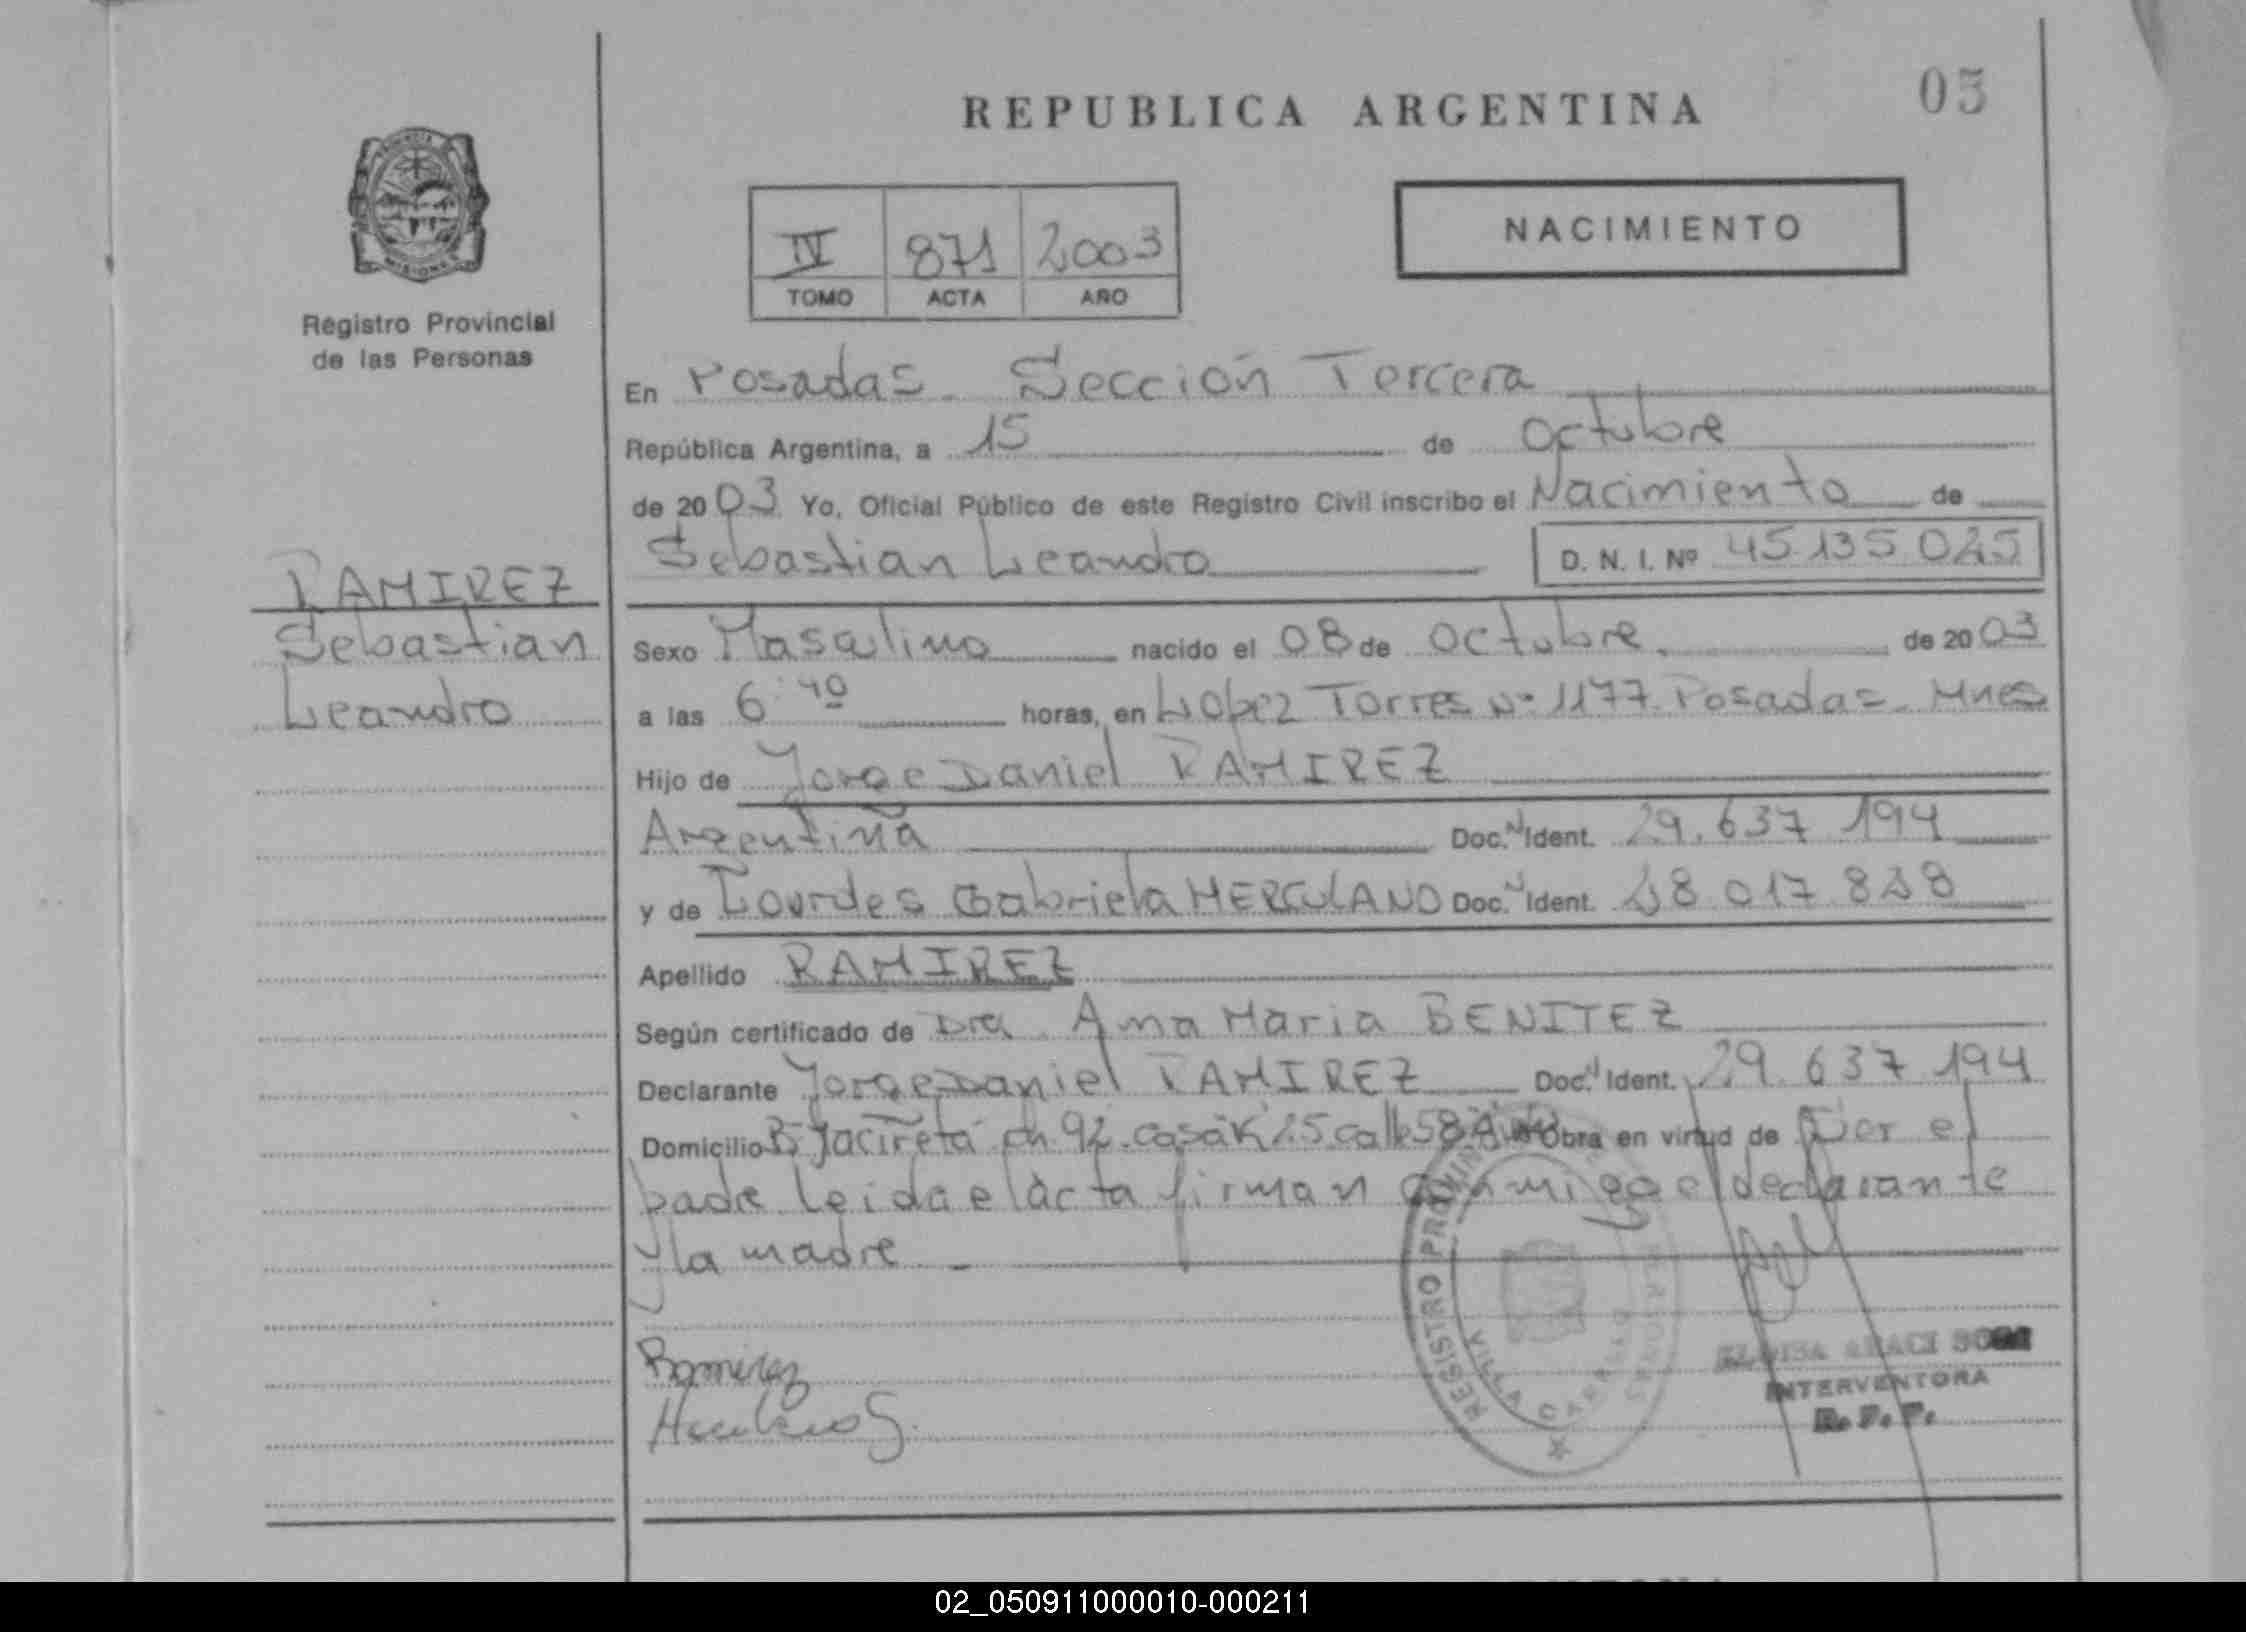 REPUBLICA ARGENTINA
03
NACIMIENTO
IV 871 2003
TOMO ACTA AÑO
MISIONES
Registro Provincial
de las Personas
En Posadas. Sección Tercera
República Argentina, a 15 de Octubre
de 2003 Yo, Oficial Público de este Registro Civil inscribo el Nacimiento de
Sebastian Leandro D. N. I. Nº 45.135.025
RAMIREZ
Sebastian
Leandro
Sexo Masculino nacido el 08 de Octubre. de 2003
a las 6:40 horas, en Lopez Torres Nº 1177. Posadas. Mnes
Hijo de Jorge Daniel RAMIREZ
Argentina Doc. Ident. 29.637.194
y de Lourdes Gabriela HERCULANO Doc. Ident. 28.017.828
Apellido RAMIREZ
Según certificado de Dra. Ana Maria BENITEZ
Declarante Jorge Daniel RAMIREZ Doc. Ident. 29.637.194
Domicilio Bº Yacireta ch 92 casa K 25 calle Obra en virtud de Ser el
padre leida el acta firman conmigo el declarante
y la madre
Ramirez
REGISTRO VILLA
INTERVENTORA
R. P. P.
02_050911000010-000211